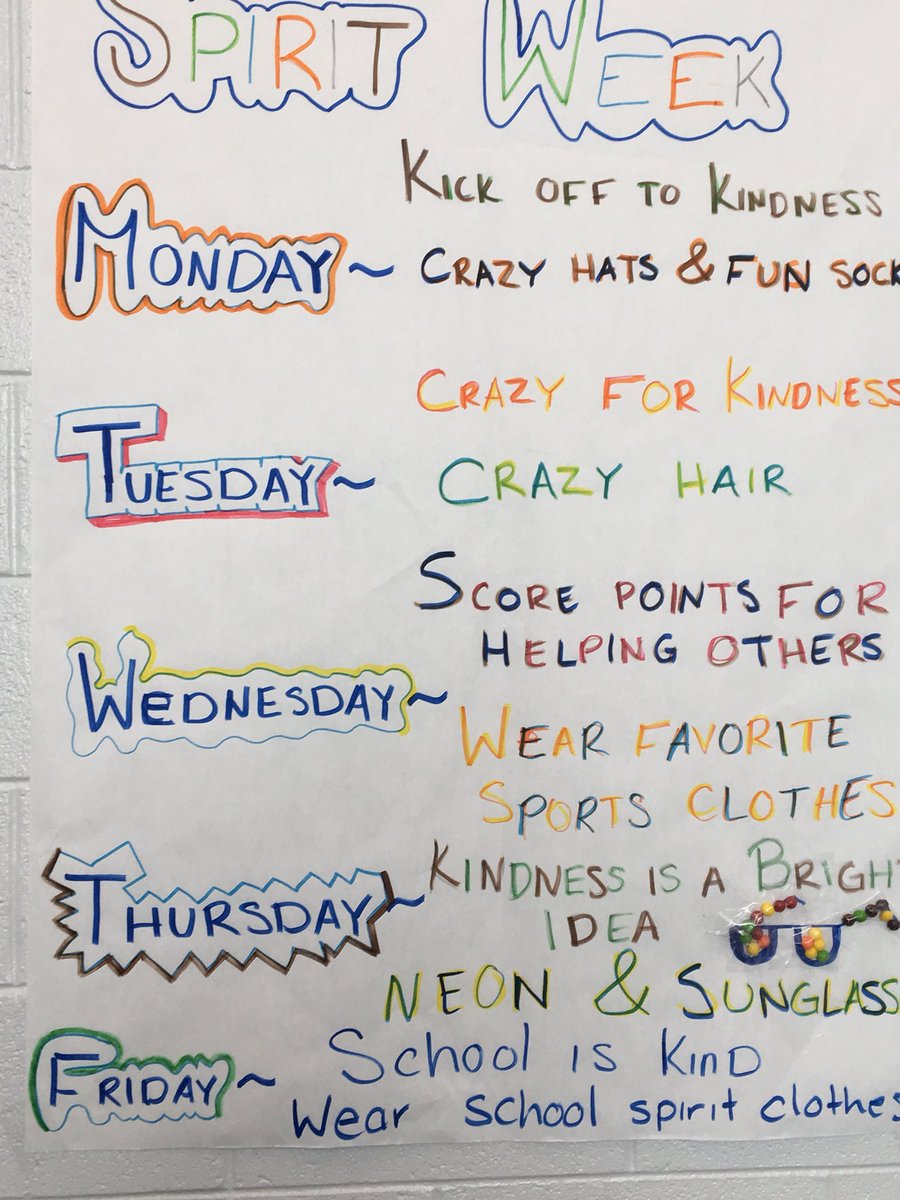 SPIRIT WEEK
KICK OFF TO KINDNESS
MONDAY ~ CRAZY HATS & FUN SOCK
CRAZY FOR KINDNESS
TUESDAY ~ CRAZY HAIR
SCORE POINTS FOR
HELPING OTHERS
WeDNESDAY ~
WEAR FAVORITE
SPORTS CLOTHES
KINDNESS IS A BRIGHT
THURSDAY ~ IDEA
NEON & SUNGLASS
FRIDAY ~ School is KinD
Wear school spirit clothes